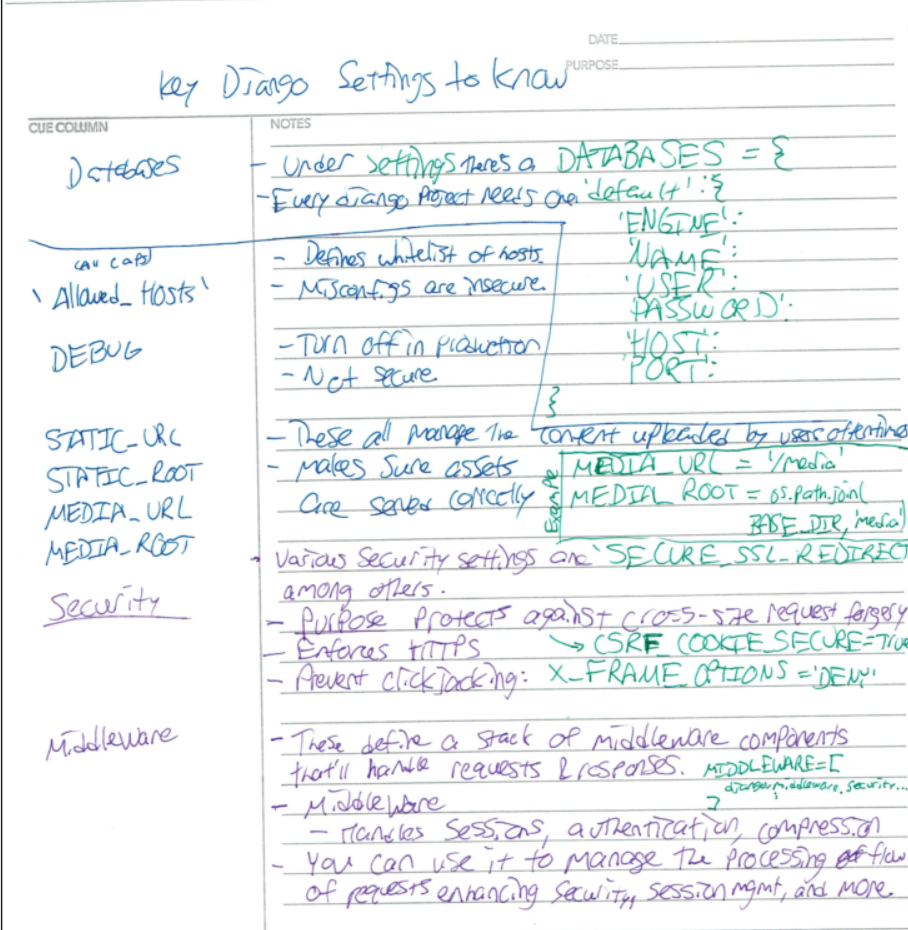 DATE
PURPOSE
Key Django Settings to know
CUE COLUMN
NOTES
Databases
- Under settings there's a DATABASES = {
- Every django Project needs one 'default': {
'ENGINE':
'NAME':
'USER':
'PASSWORD':
'HOST':
'PORT':
}
(all caps)
'Allowed_Hosts'
- Defines whitelist of hosts.
- Misconfigs are insecure.
DEBUG
- Turn off in production
- Not secure
STATIC_URL
STATIC_ROOT
MEDIA_URL
MEDIA_ROOT
- These all manage the content uploaded by users oftentimes
- Makes sure assets
are served correctly
Example
MEDIA_URL = '/media'
MEDIA_ROOT = os.path.join(
BASE_DIR, 'media')
Security
- Various security settings are 'SECURE_SSL_REDIRECT
among others.
- Purpose Protects against cross-site request forgery
→ CSRF_COOKIE_SECURE=True
- Enforces HTTPS
- Prevent clickjacking: X_FRAME_OPTIONS = 'DENY'
Middleware
- These define a stack of middleware components
that'll handle requests & responses. MIDDLEWARE=[
django.middleware.securit...
]
- Middleware
- Handles Sessions, authentication, compression
- You can use it to manage the processing flow
of requests enhancing security, session mgmt, and more.